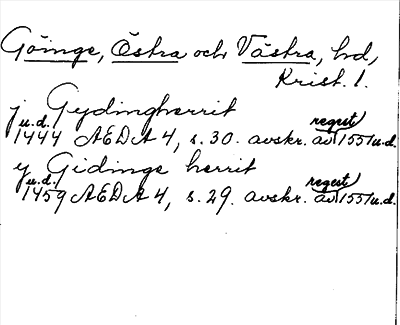 Göinge, Östra och Västra, hd,
Krist. l.
j Gydingherrit
u.d. 1444 AEDA 4, s. 30. avskr. av regest 1551 u.d.
y Gidinge herrit
u.d. 1459 AEDA 4, s. 29. avskr. av regest 1551 u.d.